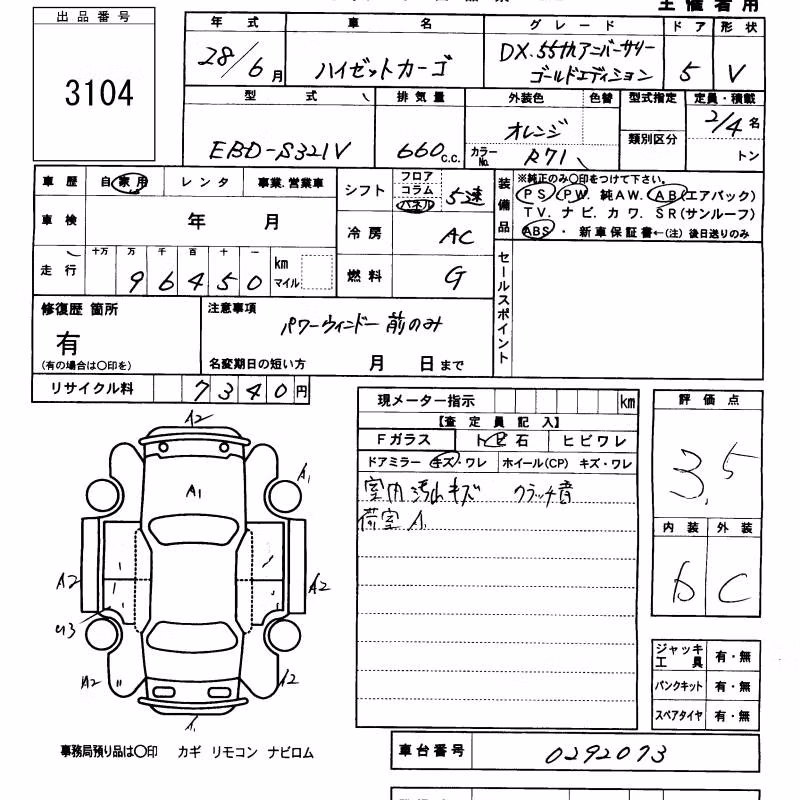 主催者用
出品番号
3104
年式 車名 グレード ドア 形状
28/6月 ハイゼットカーゴ DX.55thアニバーサリー ゴールドエディション 5 V
型式 排気量 外装色 色替 型式指定 定員・積載
EBD-S321V 660c.c. オレンジ 類別区分 2/4名
カラーNo. R71 トン
車歴 自家用 レンタ 事業.営業車
シフト フロア コラム パネル 5速
装備品 ※純正のみ〇印をつけて下さい。
PS PW. 純AW. AB(エアバッグ)
TV. ナビ. カワ. SR(サンルーフ)
ABS・ 新車保証書←(注) 後日送りのみ
車検 年 月
冷房 AC
走行 十万 万 千 百 十 一
96450 km マイル
燃料 G
セールスポイント
修復歴 箇所
有
(有の場合は〇印を)
注意事項
パワーウィンドー 前のみ
名変期日の短い方 月 日まで
リサイクル料 7340円
現メーター指示 km
【査定員記入】
Fガラス トビ石 ヒビワレ
ドアミラー キズ・ワレ ホイール(CP) キズ・ワレ
室内汚れキズ クラッチ音
荷室A
評価点
3.5
内装 外装
D C
A2
A1
A1
A2
A2
U3
A2
A2
A1
ジャッキ工具 有・無
パンクキット 有・無
スペアタイヤ 有・無
事務局預り品は〇印 カギ リモコン ナビロム
車台番号 0292073